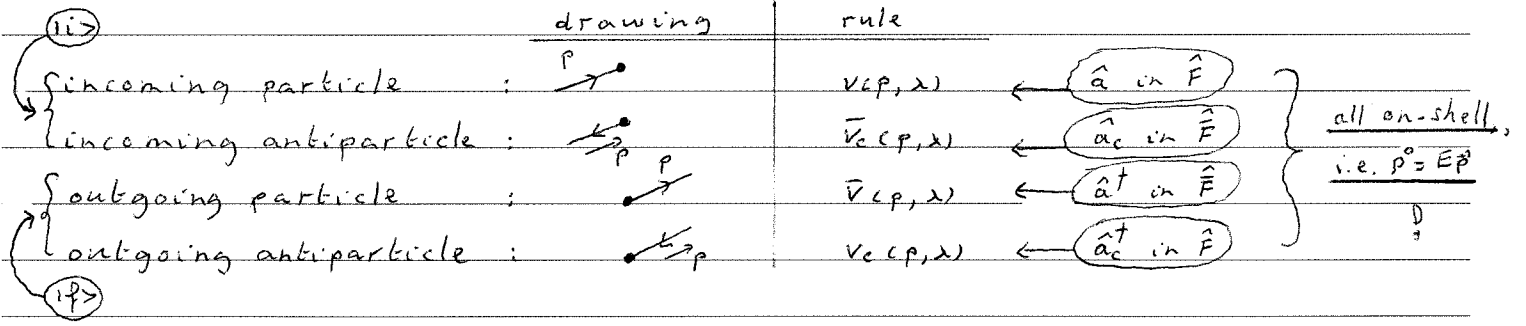 drawing rule
|i>
incoming particle : p v(p, λ) ← â in F̂
incoming antiparticle : p v̄c(p, λ) ← âc in F̄̂
outgoing particle : p v̄(p, λ) ← â† in F̄̂
outgoing antiparticle : p vc(p, λ) ← âc† in F̂
|f>
all on-shell,
i.e. p⁰ = Ep⃗
!